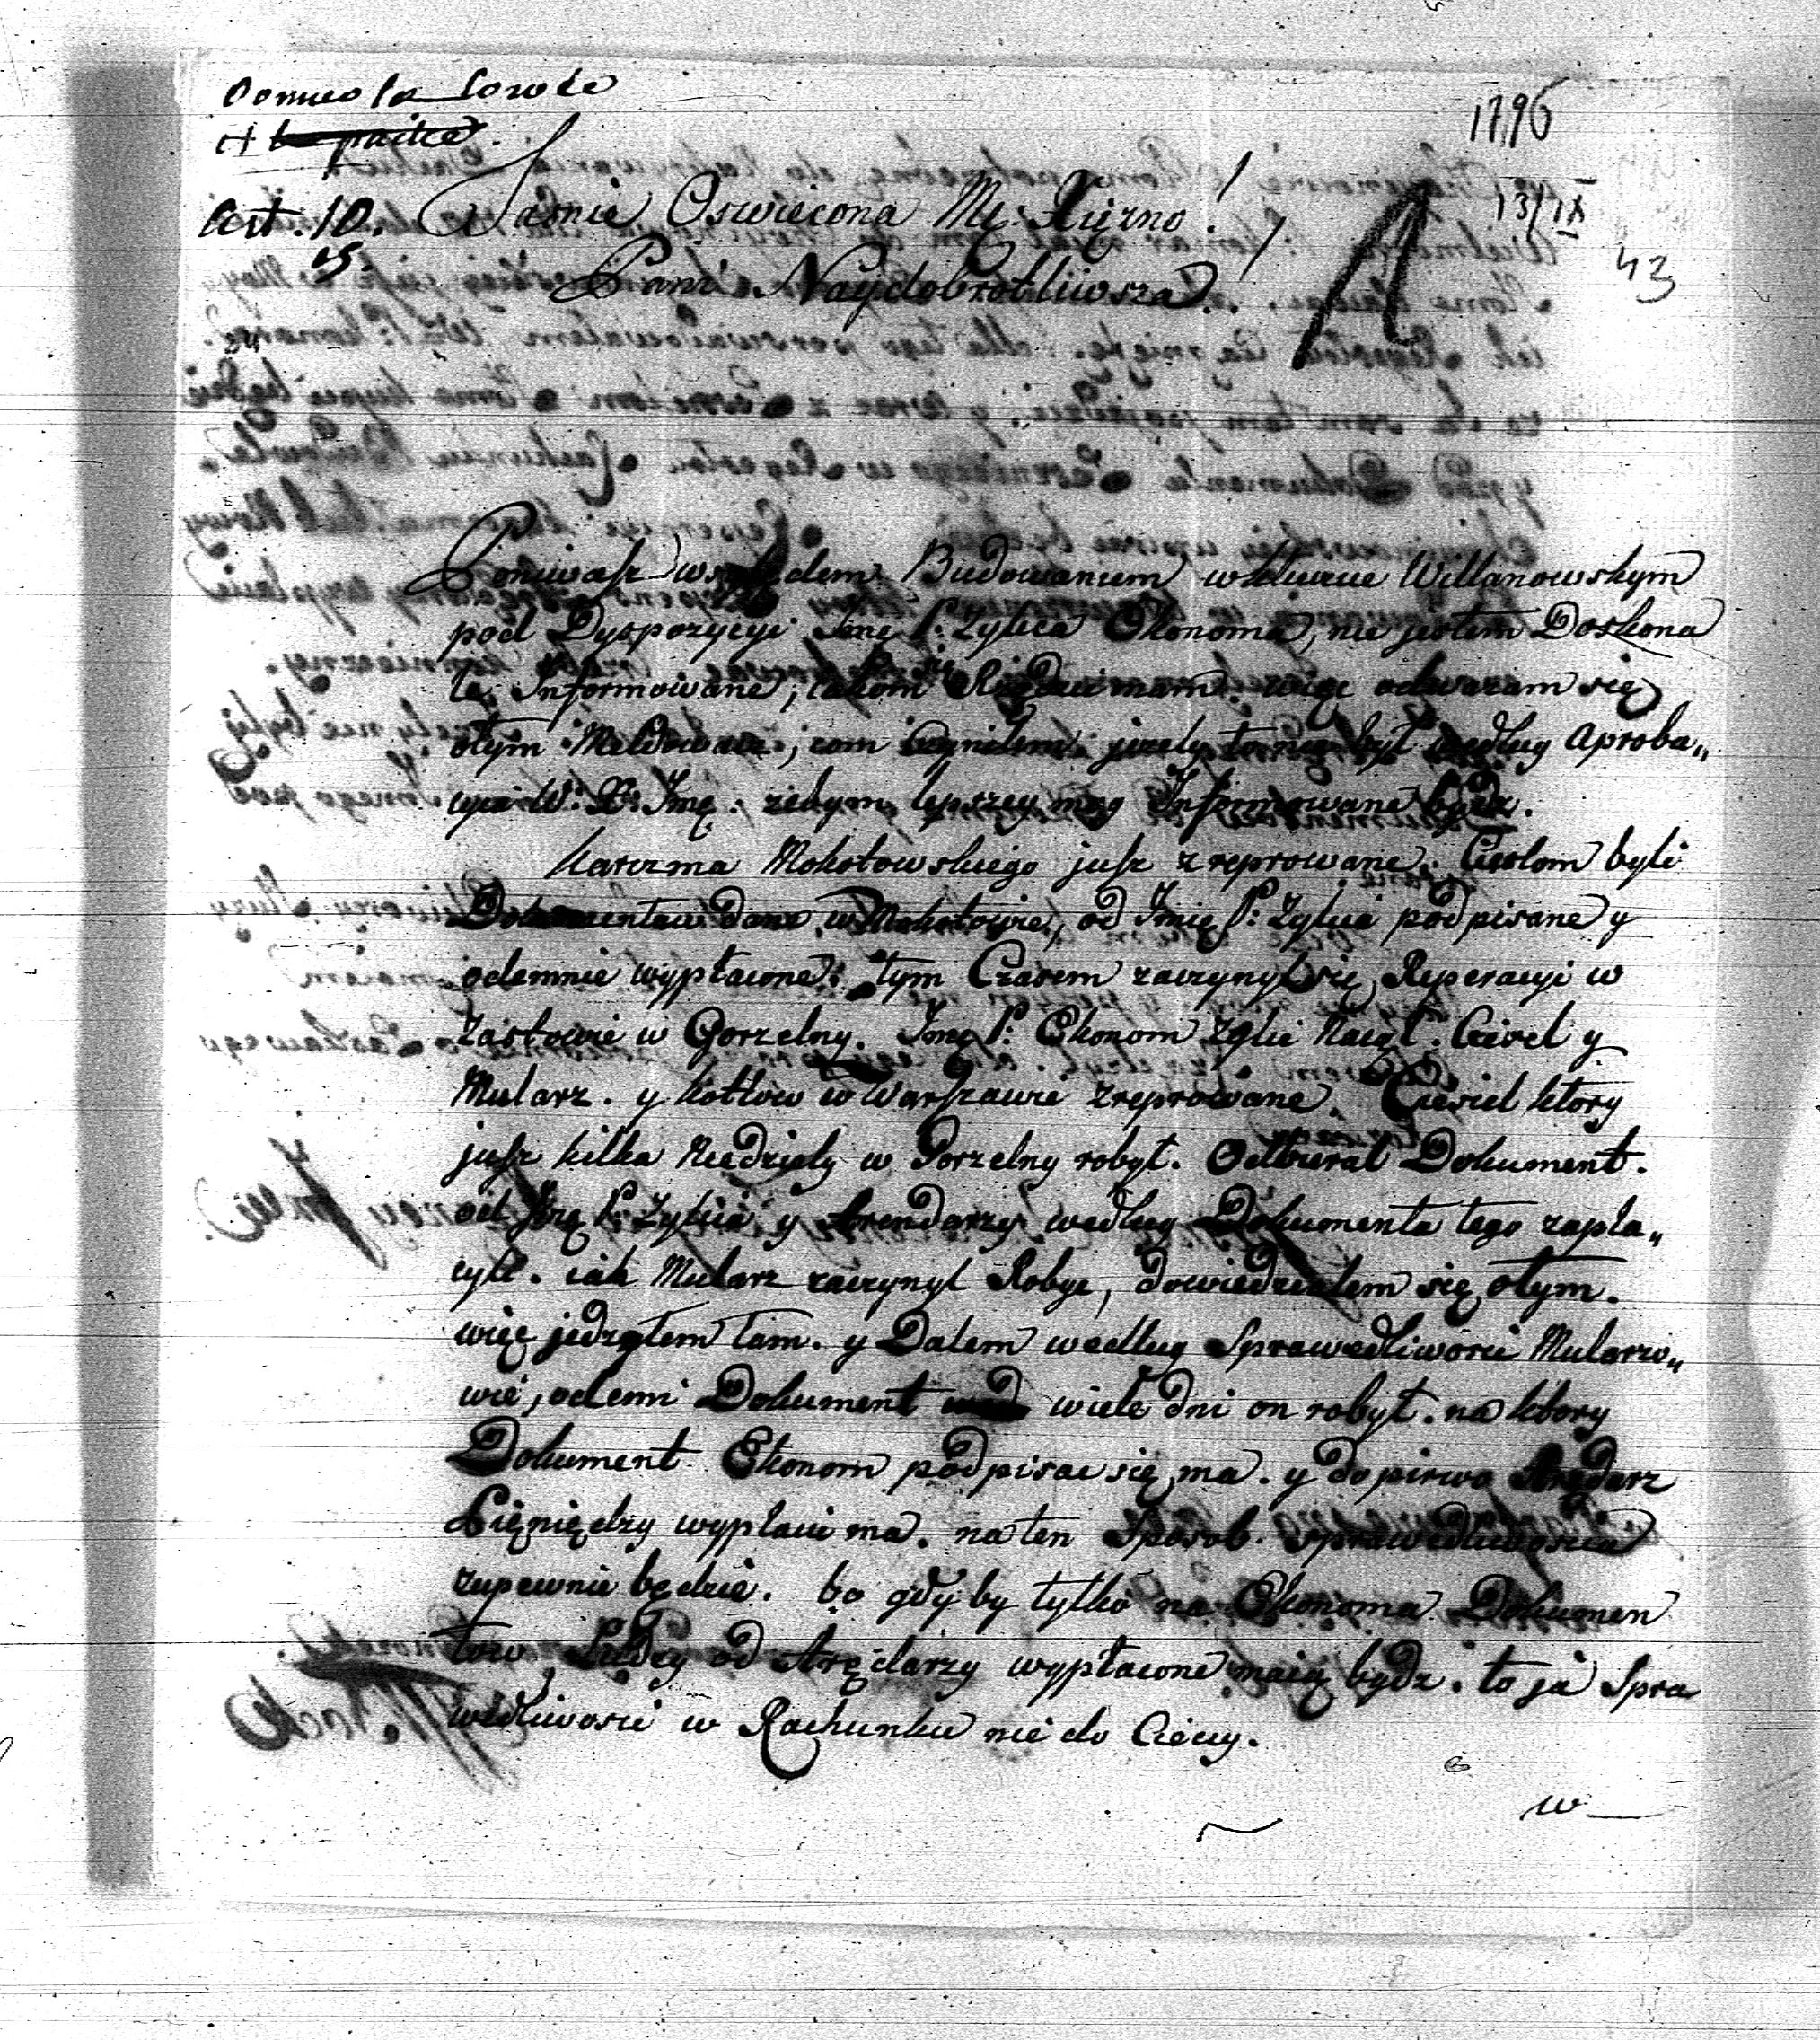 1796
13/IX
43
Art. 10.
Jasnie Oswiecona Mę Xiężno!
Pani Naydobrotliwsza!
Poniwasz względem Budowaniem w kluczu Willanowskym
pod Dyspozycyi Jmę P: Zylica Ekonoma, nie jestem Doskona
le, Informowane, iakom się Rządzic mam. więc odwazam się
otym Meldowac, com Czynilem, jezely to nie był według Aproba„
cyia W: X: Jmę. zebym lepszey mog Informowane bydz.
Karczma Mokotowskiego jusz zreprowane. Cieslom byli
Dokumentow dane w Mokotowie, od Jmię P: Zylica podpisane y
odemnie wypłacone. tym Czasem zaczynył się Reperacyi w
Zastowie w Gorzelny. Jmę P: Ekonom Zylic Naiął. Ciesel y
Mularz. y kotłow w Warszawie zreprowane. Ciesiel ktory
jusz kilka Niedziely w Gorzelny robył. Odbierał Dokument.
od Jmę P: Zylica y Arendarzy według Dokumenta tego zapła„
cyli. iak Mularz zaczynył Robyc, dowiedzialem się otym.
więc jedzałem tam. y Dalem według Sprawedliwosci Mularzo„
wie, odemi Dokument wiele dni on robył. na ktory
Dokument Ekonom podpisac się ma. y dopirwo Arędarz
Pięniędzy wypłaci ma. na ten Sposob. Sprawedliwoscia
zupewnie będzie. bo gdyby tylko na Ekonoma Dokumen
tow, Ludzy od Aręдarzy wypłacone maią bydz. to ja Spra
wedliwosci w Rachunku nie do Ciecy.
w